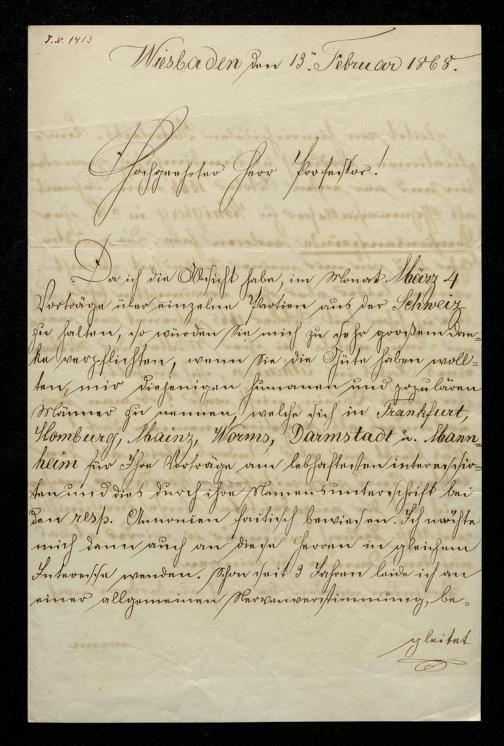 T. N. 1413
Wiesbaden den 13. Februar 1868.
Hochgeehrter Herr Professor!
Da ich die Absicht habe, im Monat März 4
Vorträge über einzelne Partien aus der Schweiz
zu halten, so würden Sie mich zu sehr großem Dan-
ke verpflichten, wenn Sie die Güte haben woll-
ten, mir diejenigen humanen und populären
Männer zu nennen, welche sich in Frankfurt,
Homburg, Mainz, Worms, Darmstadt u. Mann-
heim für Ihre Vorträge am lebhaftesten interessir-
ten und dies durch ihre Namensunterschrift bei
den resp. Annoncen faktisch bewiesen. Ich möchte
mich dann auch an diese Herren in gleichem
Interesse wenden. Schon seit 3 Jahren leide ich an
einer allgemeinen Nervenverstimmung, be-
gleitet